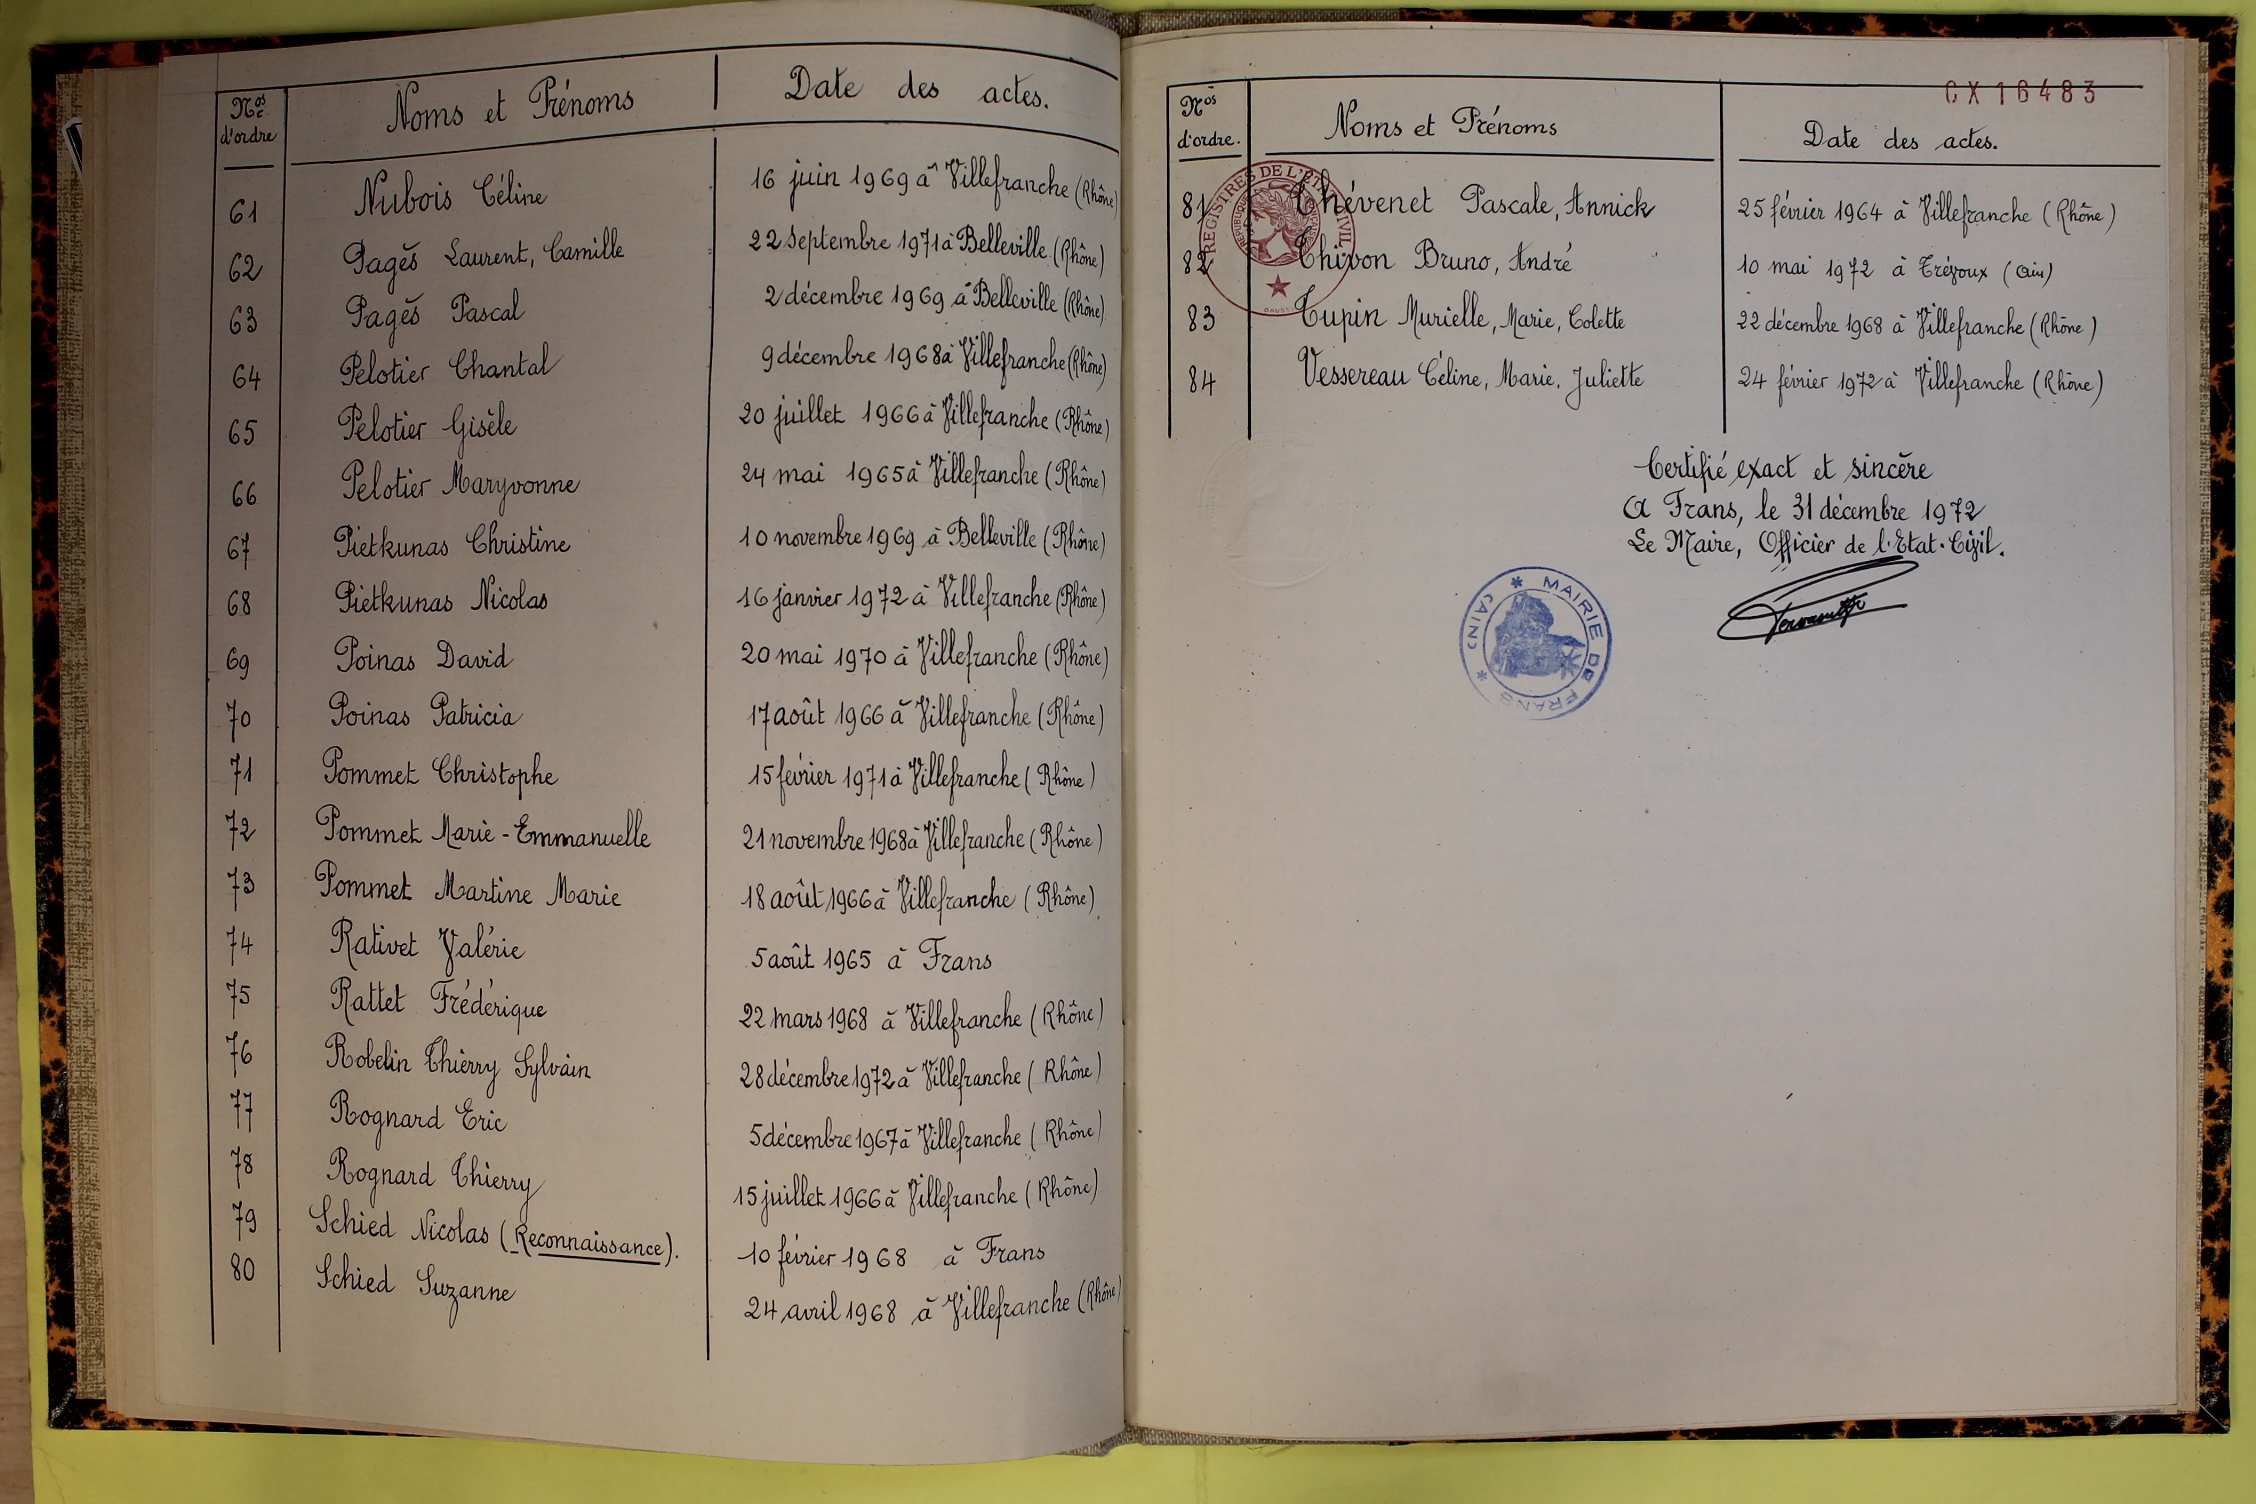 Nos d'ordre Noms et Prénoms Date des actes.
61 Nubois Céline 16 juin 1969 à Villefranche (Rhône)
62 Pagès Laurent, Camille 22 Septembre 1971 à Belleville (Rhône)
63 Pagès Pascal 2 décembre 1969 à Belleville (Rhône)
64 Pelotier Chantal 9 décembre 1968 à Villefranche (Rhône)
65 Pelotier Gisèle 20 juillet 1966 à Villefranche (Rhône)
66 Pelotier Maryvonne 24 mai 1965 à Villefranche (Rhône)
67 Pietkunas Christine 10 novembre 1969 à Belleville (Rhône)
68 Pietkunas Nicolas 16 janvier 1972 à Villefranche (Rhône)
69 Poinas David 20 mai 1970 à Villefranche (Rhône)
70 Poinas Patricia 17 août 1966 à Villefranche (Rhône)
71 Pommet Christophe 15 février 1971 à Villefranche (Rhône)
72 Pommet Marie-Emmanuelle 21 novembre 1968 à Villefranche (Rhône)
73 Pommet Martine Marie 18 août 1966 à Villefranche (Rhône)
74 Rativet Valérie 5 août 1965 à Frans
75 Rattet Frédérique 22 mars 1968 à Villefranche (Rhône)
76 Robelin Thierry Sylvain 28 décembre 1972 à Villefranche (Rhône)
77 Rognard Eric 5 décembre 1967 à Villefranche (Rhône)
78 Rognard Thierry 15 juillet 1966 à Villefranche (Rhône)
79 Schied Nicolas (Reconnaissance). 10 février 1968 à Frans
80 Schied Suzanne 24 avril 1968 à Villefranche (Rhône)
CX 16483
Nos d'ordre. Noms et Prénoms Date des actes.
REGISTRES DE L'ETAT CIVIL
81 Thévenet Pascale, Annick 25 février 1964 à Villefranche (Rhône)
82 Thivon Bruno, André 10 mai 1972 à Trévoux (Ain)
83 Tupin Murielle, Marie, Colette 22 décembre 1968 à Villefranche (Rhône)
84 Vessereau Céline, Marie, Juliette 24 février 1972 à Villefranche (Rhône)
Certifié exact et sincère
A Frans, le 31 décembre 1972
Le Maire, Officier de l'Etat-Civil.
MAIRIE DE FRANS * (AIN) *